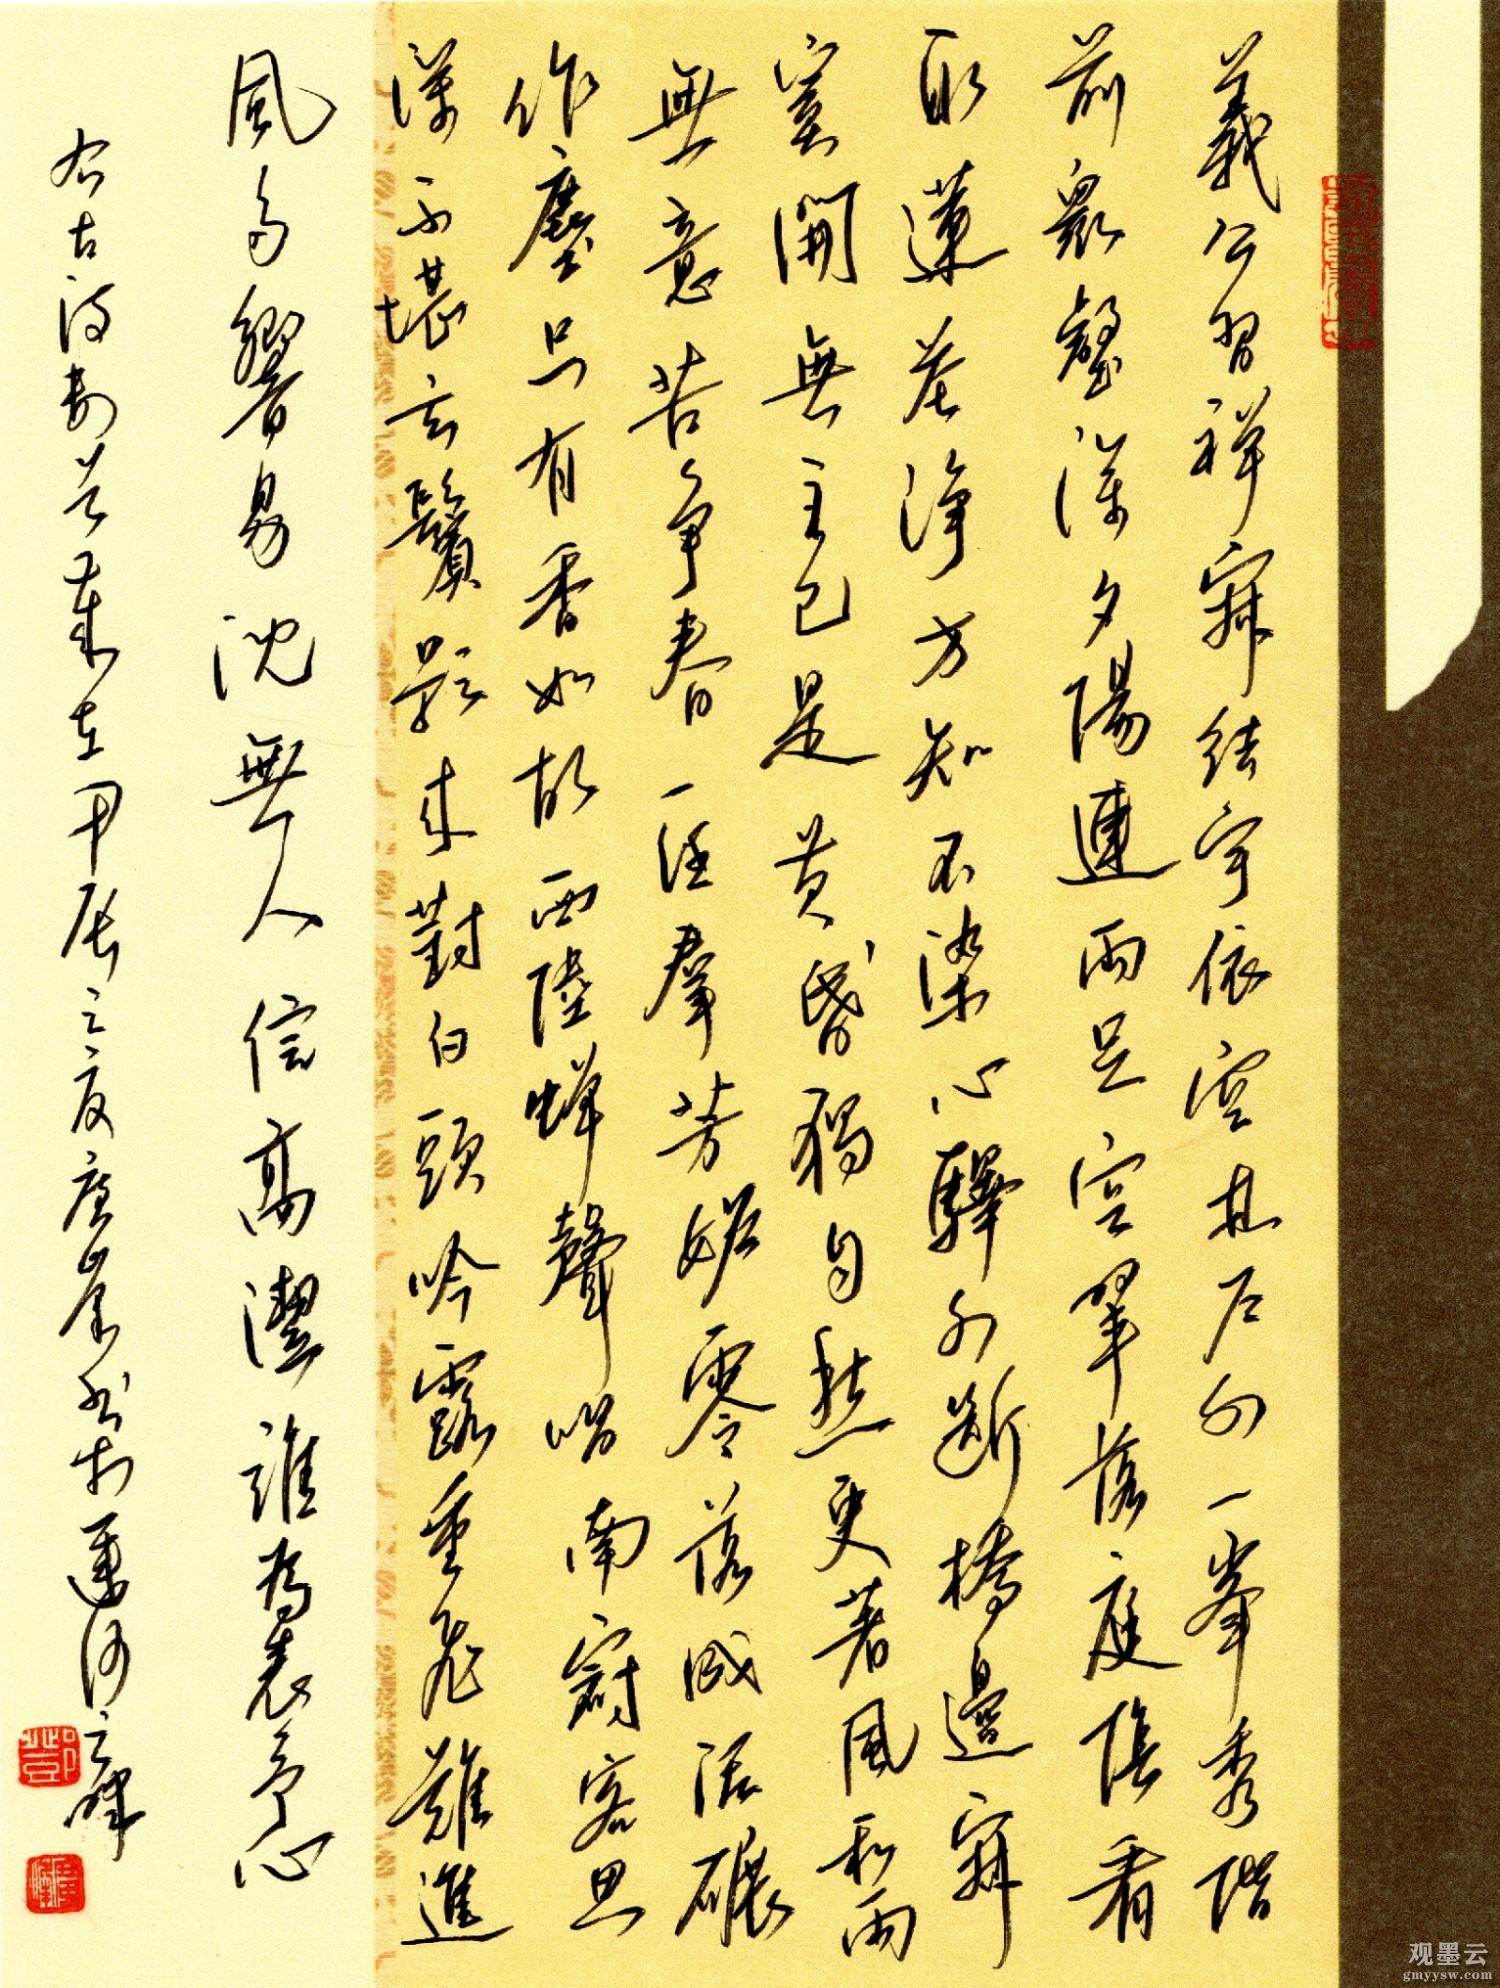 義公習禪寂結宇依空林戶外一峯秀階
前衆壑深夕陽連雨足空翠落庭陰看
取蓮花淨方知不染心驛外斷橋邊寂
寞開無主已是黄昏獨自愁更著風和雨
無意苦争春一任羣芳妬零落成泥碾
作塵只有香如故西陸蟬聲唱南冠客思
深不堪玄鬢影来對白頭吟露重飛難進
風多響易沈無人信高潔誰為表予心
右古诗数首歲在甲辰之夏书於運河之畔
观墨云
gmyysw.com